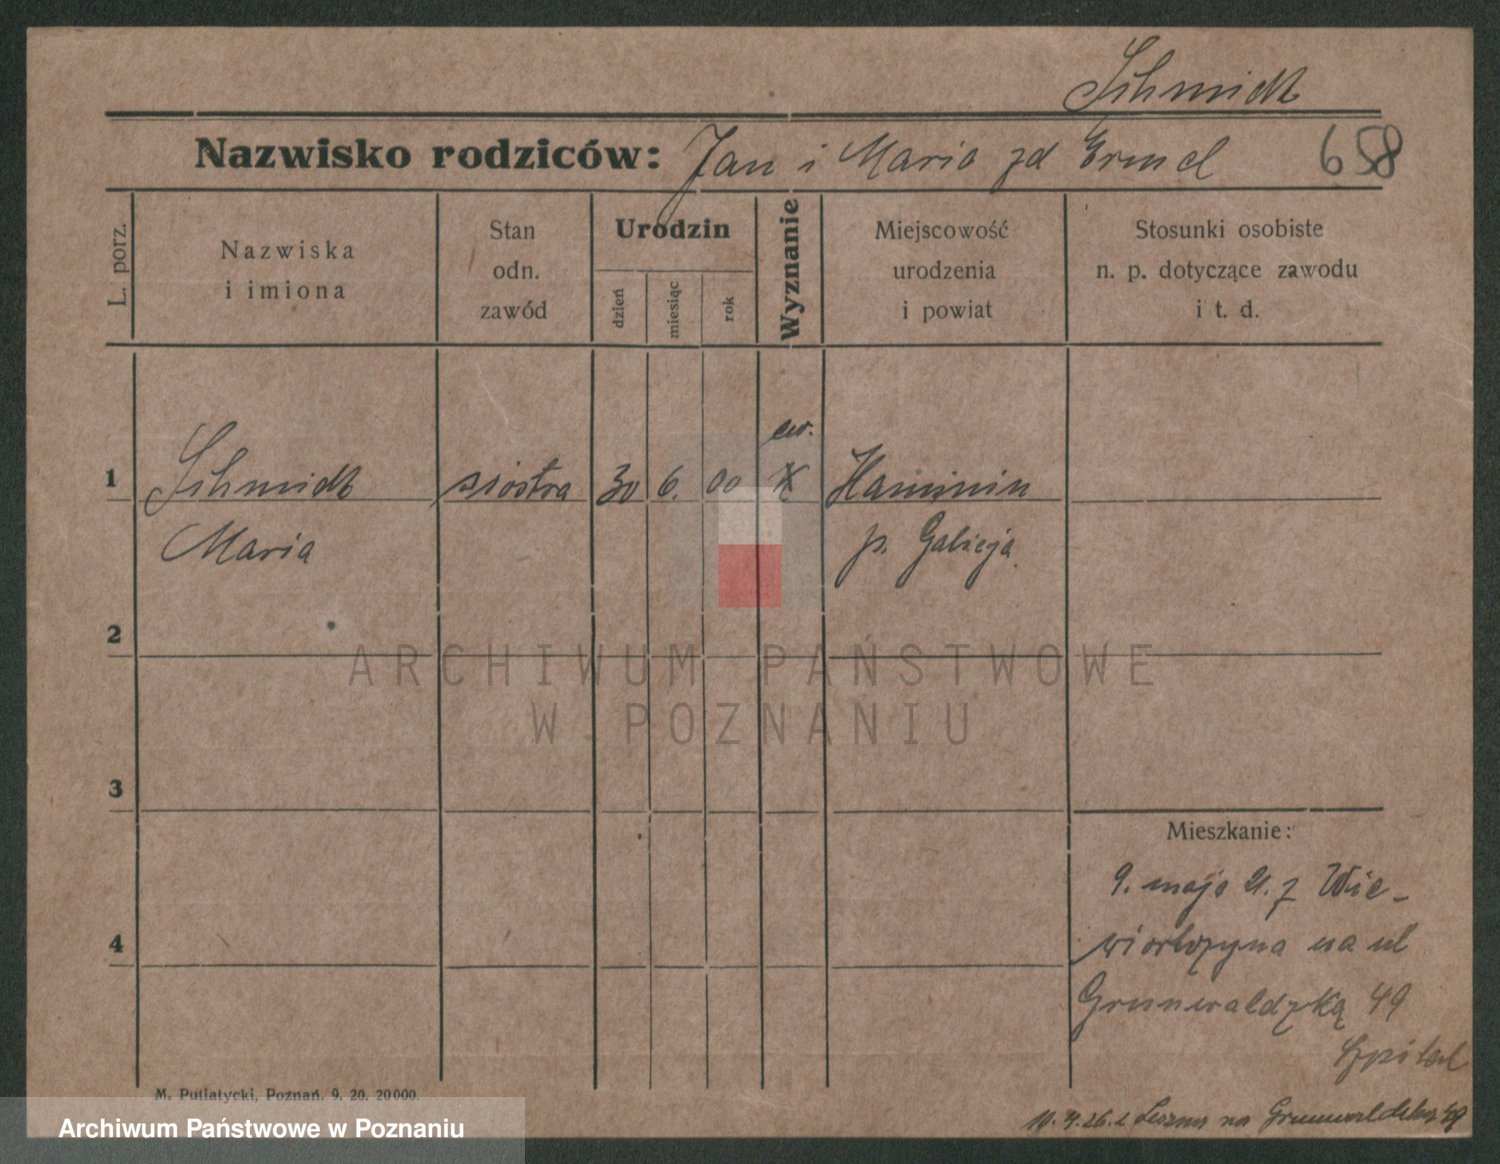 Schmidt
Nazwisko rodziców: Jan i Maria zd Ermel
658
L. porz.
Nazwiska
i imiona
Stan
odn.
zawód
Urodzin
dzień
miesiąc
rok
Wyznanie
Miejscowość
urodzenia
i powiat
Stosunki osobiste
n. p. dotyczące zawodu
i t. d.
ew.
1 Schmidt siostra 30 6. 00 K Haminin
Maria p. Galicja.
2
ARCHIWUM PAŃSTWOWE
W POZNANIU
3
Mieszkanie:
9. maja 21. z Wie-
wiorczyna na ul
4
Grunwaldzką 49
Szpital
M. Putiatycki, Poznań. 9. 20. 20000.
26. z Leszna na Grunwaldzka 49
Archiwum Państwowe w Poznaniu